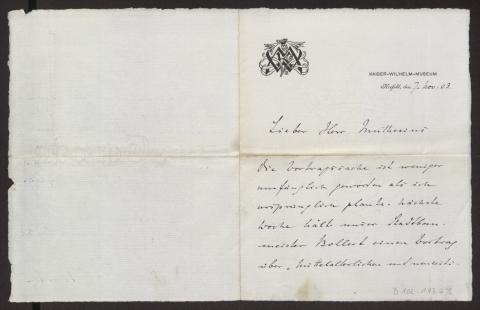 KAISER-WILHELM-MUSEUM
Krefeld, den 7. Nov. 03.
Lieber Herr Muthesius
Die Vortragssache ist weniger
umfänglich geworden als ich
ursprünglich plante. Nächste
Woche hält unser Stadtbau-
meister einen Vortrag
über „Mittelalterlichen und neuzeitl.